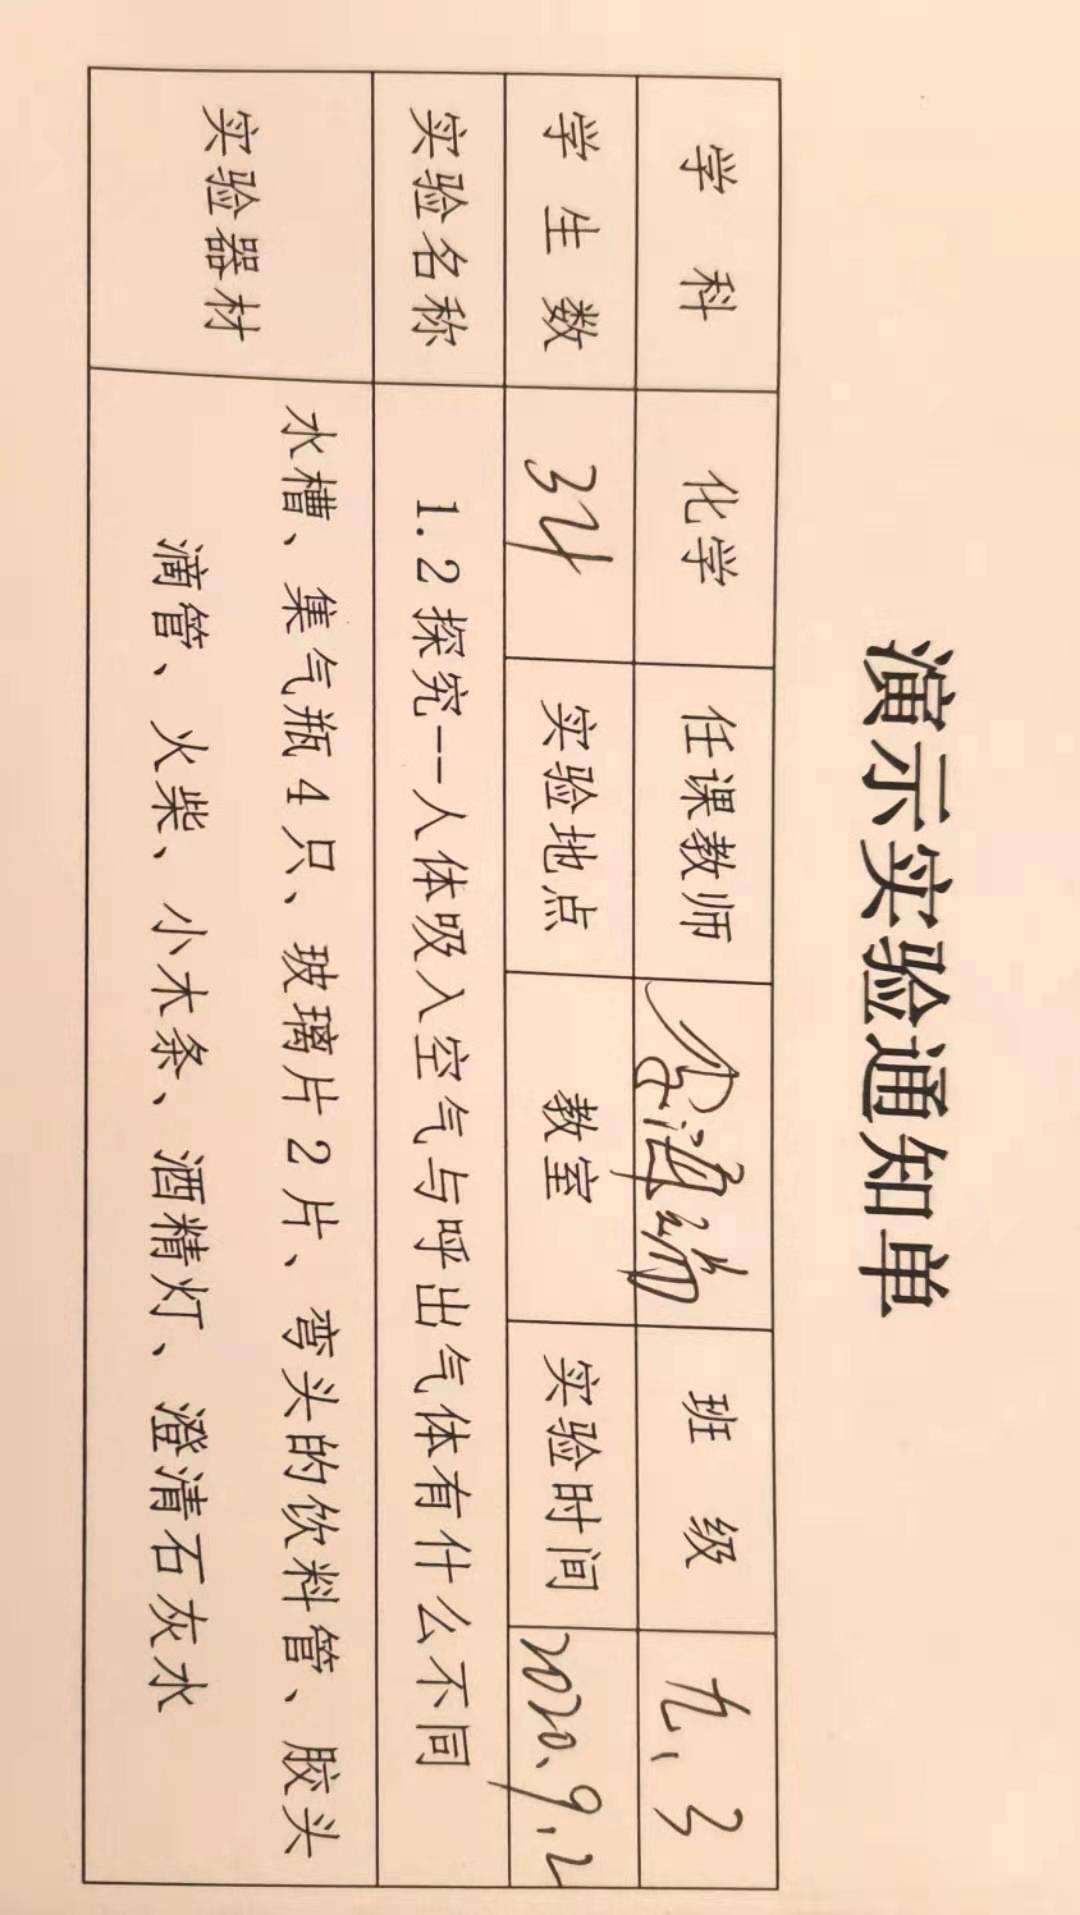 演示实验通知单
学科 化学 任课教师 班级 九、3
学生数 34 实验地点 教室 实验时间 2020.9.2
实验名称 1.2探究--人体吸入空气与呼出气体有什么不同
实验器材 水槽、集气瓶4只、玻璃片2片、弯头的饮料管、胶头
滴管、火柴、小木条、酒精灯、澄清石灰水